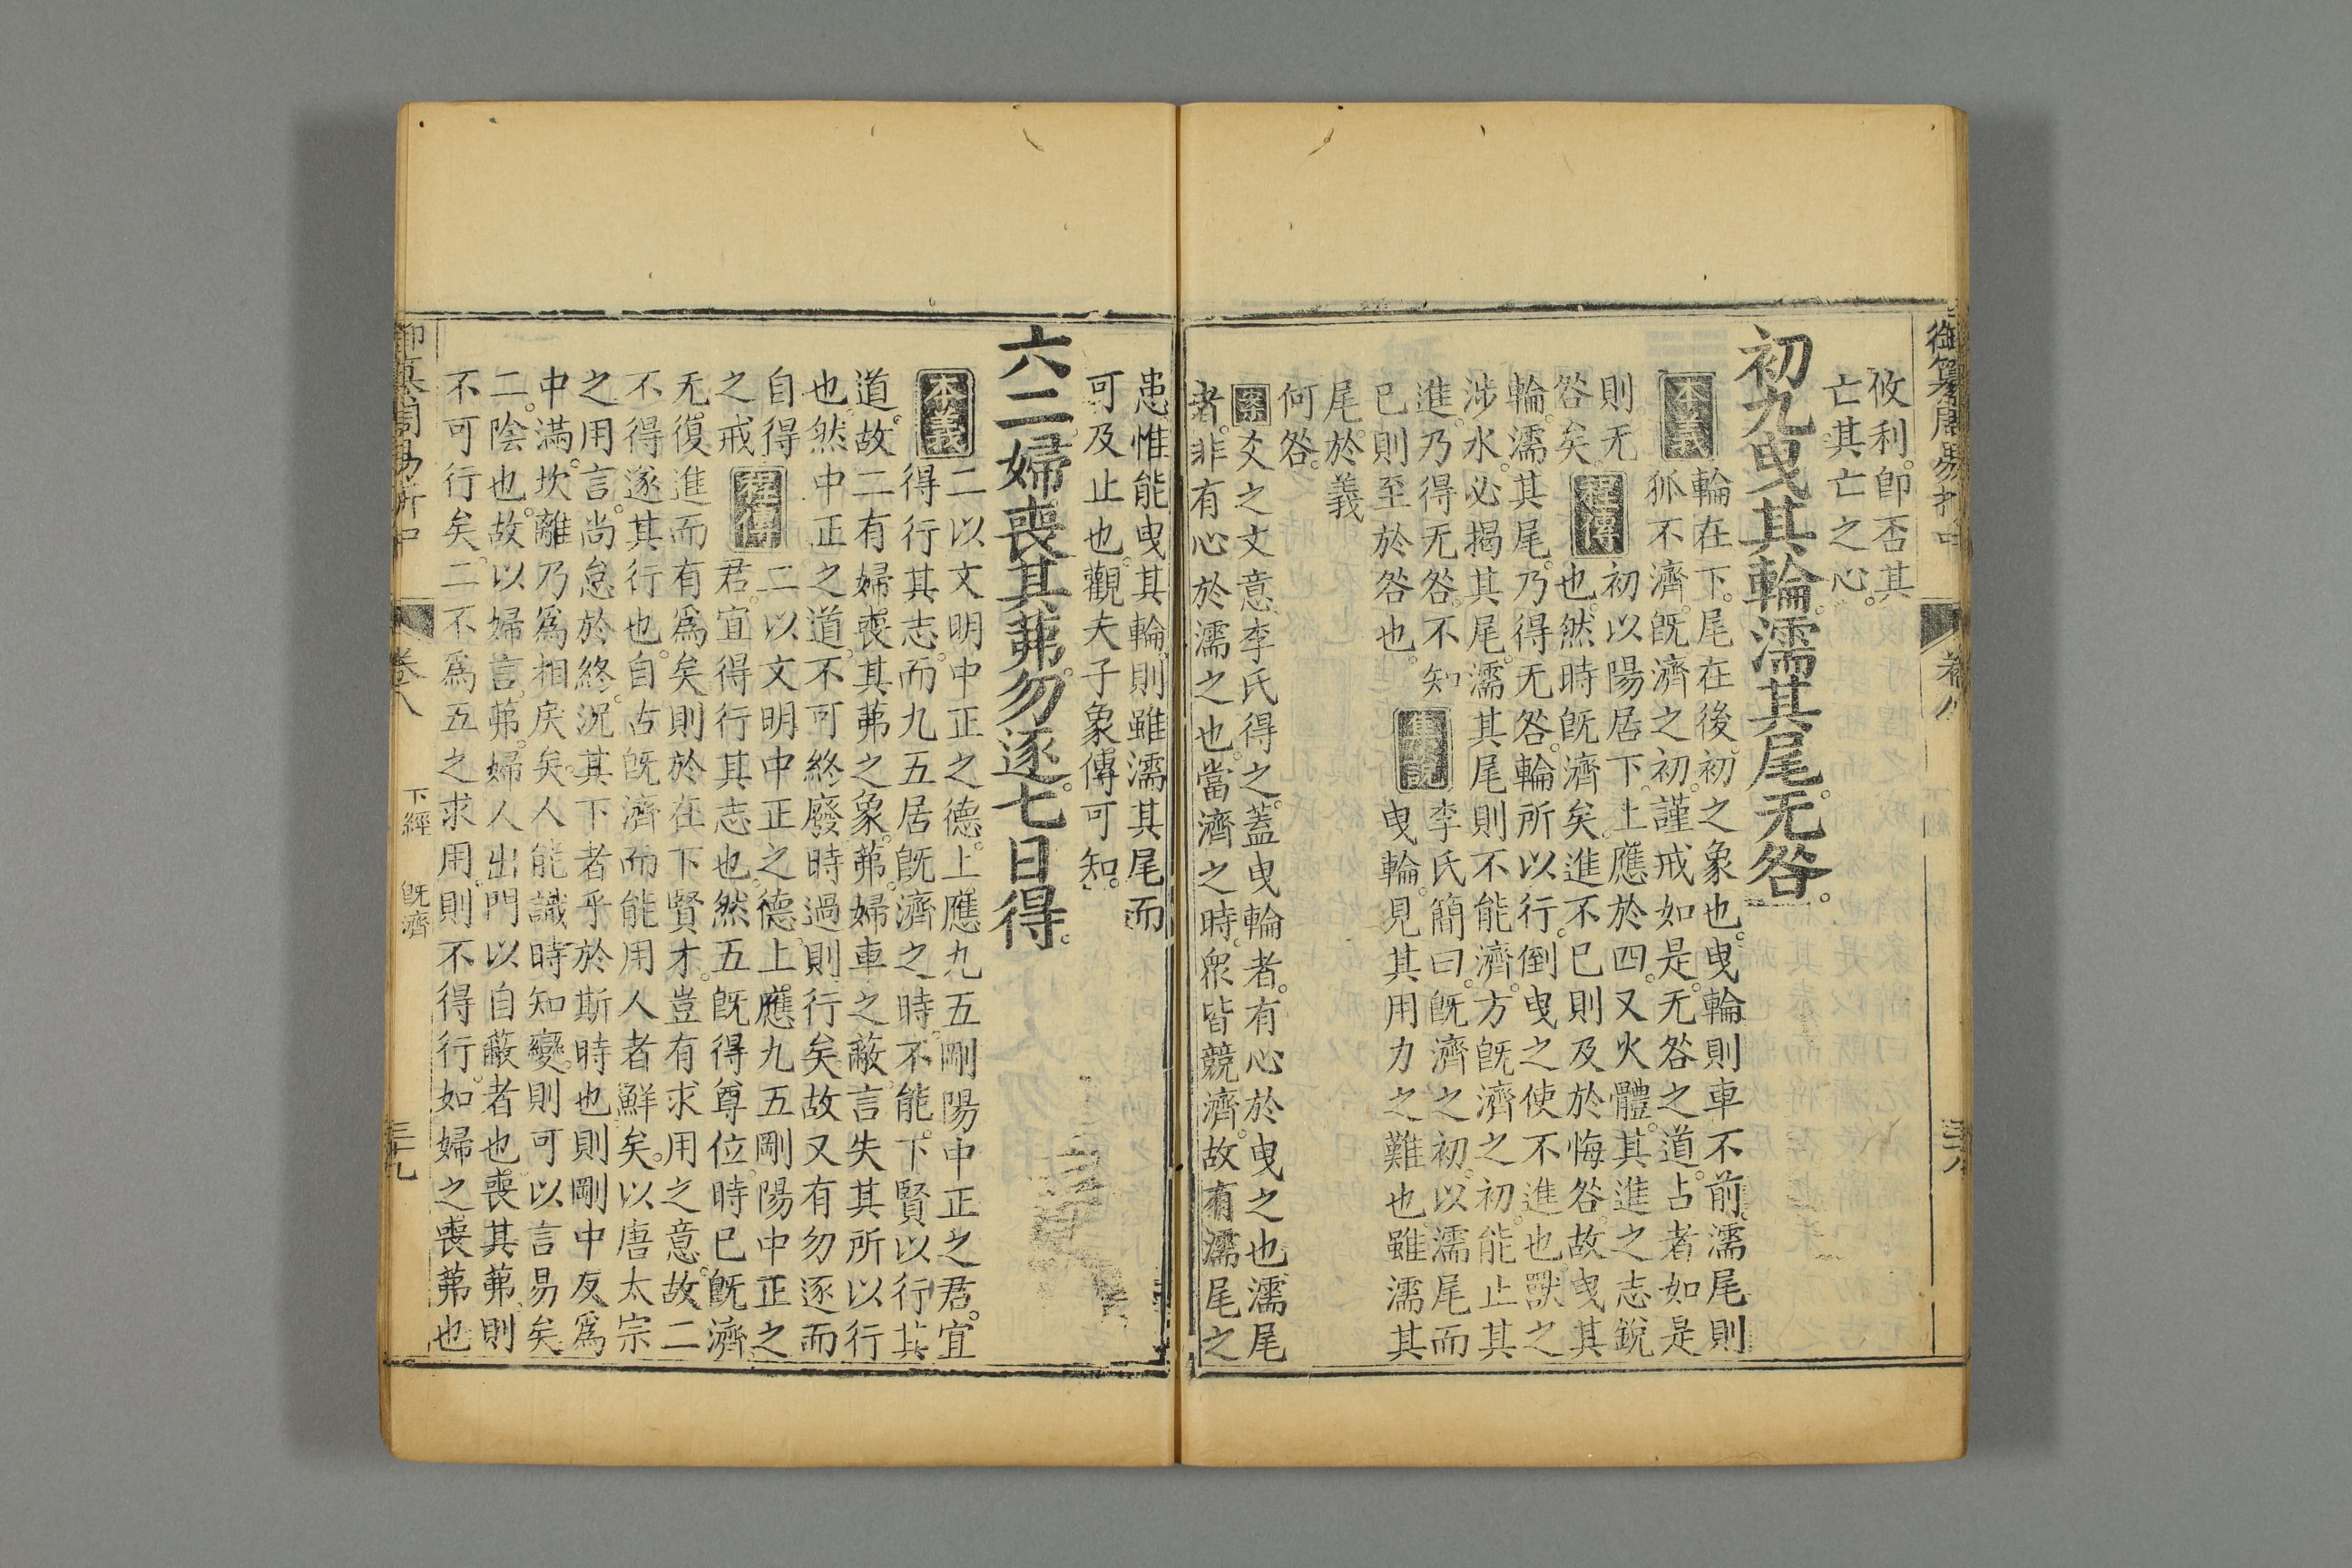 御纂周易折中　卷八　三十八
攸利。卽否其
亡其亡之心。
初九曳其輪。濡其尾。无咎。
本義　輪在下。尾在後。初之象也。曳輪則車不前。濡尾則
狐不濟。旣濟之初。謹戒如是。无咎之道。占者如是
則无
咎矣。
程傳　初以陽居下。上應於四。又火體。其進之志銳
也。然時旣濟矣。進不已則及於悔咎。故曳其
輪。濡其尾。乃得无咎。輪所以行。倒曳之使不進也。獸之
涉水。必揭其尾。濡其尾則不能濟。方旣濟之初。能止其
進。乃得无咎。不知
已則至於咎也。
集說　李氏簡曰。旣濟之初。以濡尾而
曳輪。見其用力之難也。雖濡其
尾。於義
何咎。
案　爻之文意李氏得之。蓋曳輪者。有心於曳之也。濡尾
者。非有心於濡之也。當濟之時。衆皆競濟。故有濡尾之
患惟能曳其輪。則雖濡其尾而
可及止也。觀夫子象傳可知。
六二婦喪其茀。勿逐。七日得。
本義　二以文明中正之德。上應九五剛陽中正之君。宜
得行其志。而九五居旣濟之時。不能下賢以行其
道。故二有婦喪其茀之象。茀。婦車之蔽。言失其所以行
也。然中正之道。不可終廢。時過則行矣。故又有勿逐而
自得
之戒
程傳　二以文明中正之德。上應九五剛陽中正之
君。宜得行其志也。然五旣得尊位。時已旣濟
无復進而有爲矣。則於在下賢才。豈有求用之意。故二
不得遂其行也。自古旣濟而能用人者鮮矣。以唐太宗
之用言。尚怠於終。況其下者乎。於斯時也。則剛中反爲
中滿。坎離乃爲相戾矣。人能識時知變。則可以言易矣
二。陰也。故以婦言。茀。婦人出門以自蔽者也。喪其茀。則
不可行矣。二不爲五之求用。則不得行。如婦之喪茀也
御纂周易折中　卷八　下經　旣濟　三十九